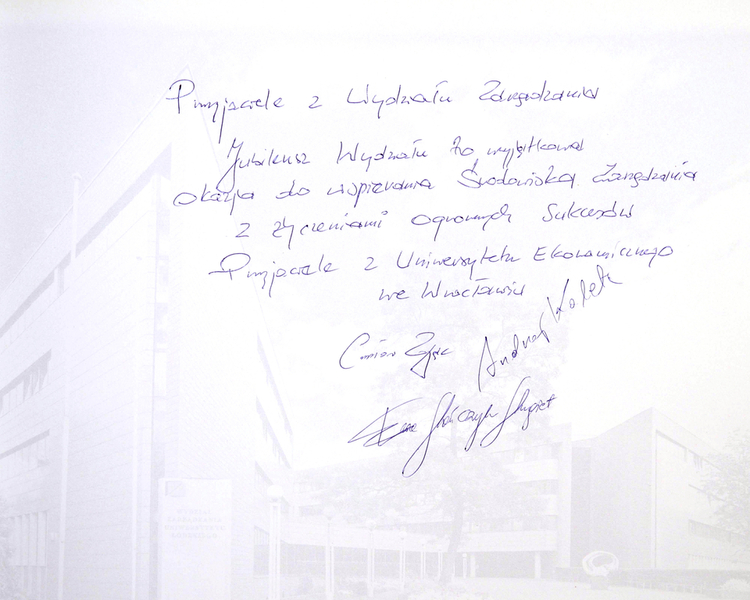 Przyjaciele z Wydziału Zarządzania
Jubileusz Wydziału to wyjątkowa
okazja do wspierania Środowiska Zarządzania
z życzeniami ogromnych sukcesów
Przyjaciele z Uniwersytetu Ekonomicznego
we Wrocławiu
Andrzej
Ewa